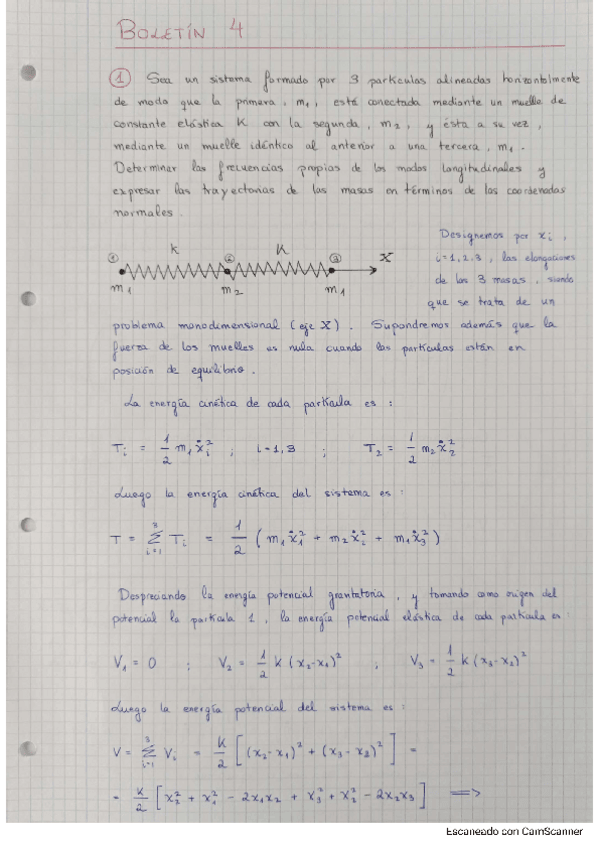 BOLETÍN 4
① Sea un sistema formado por 3 partículas alineadas horizontalmente
de modo que la primera, m₁, está conectada mediante un muelle de
constante elástica K con la segunda, m₂, y ésta a su vez,
mediante un muelle idéntico al anterior a una tercera, m₁.
Determinar las frecuencias propias de los modos longitudinales y
expresar las trayectorias de las masas en términos de las coordenadas
normales.
① k ② K ③ X
m₁ m₂ m₁
Designemos por xᵢ,
i=1,2,3, las elongaciones
de las 3 masas, siendo
que se trata de un
problema monodimensional (eje X). Supondremos además que la
fuerza de los muelles es nula cuando las partículas están en
posición de equilibrio.
La energía cinética de cada partícula es:
Tᵢ = 1/2 m₁ẋᵢ² ; i=1,3 ; T₂ = 1/2 m₂ẋ₂²
Luego la energía cinética del sistema es:
T = Σᵢ₌₁³ Tᵢ = 1/2 (m₁ẋ₁² + m₂ẋ₂² + m₁ẋ₃²)
Despreciando la energía potencial gravitatoria, y tomando como origen del
potencial la partícula 1, la energía potencial elástica de cada partícula es:
V₁ = 0 ; V₂ = 1/2 k (x₂-x₁)² ; V₃ = 1/2 k (x₃-x₂)²
Luego la energía potencial del sistema es:
V = Σᵢ₌₁³ Vᵢ = K/2 [(x₂-x₁)² + (x₃-x₂)²] =
= K/2 [x₂² + x₁² - 2x₁x₂ + x₃² + x₂² - 2x₂x₃] ⟹
Escaneado con CamScanner